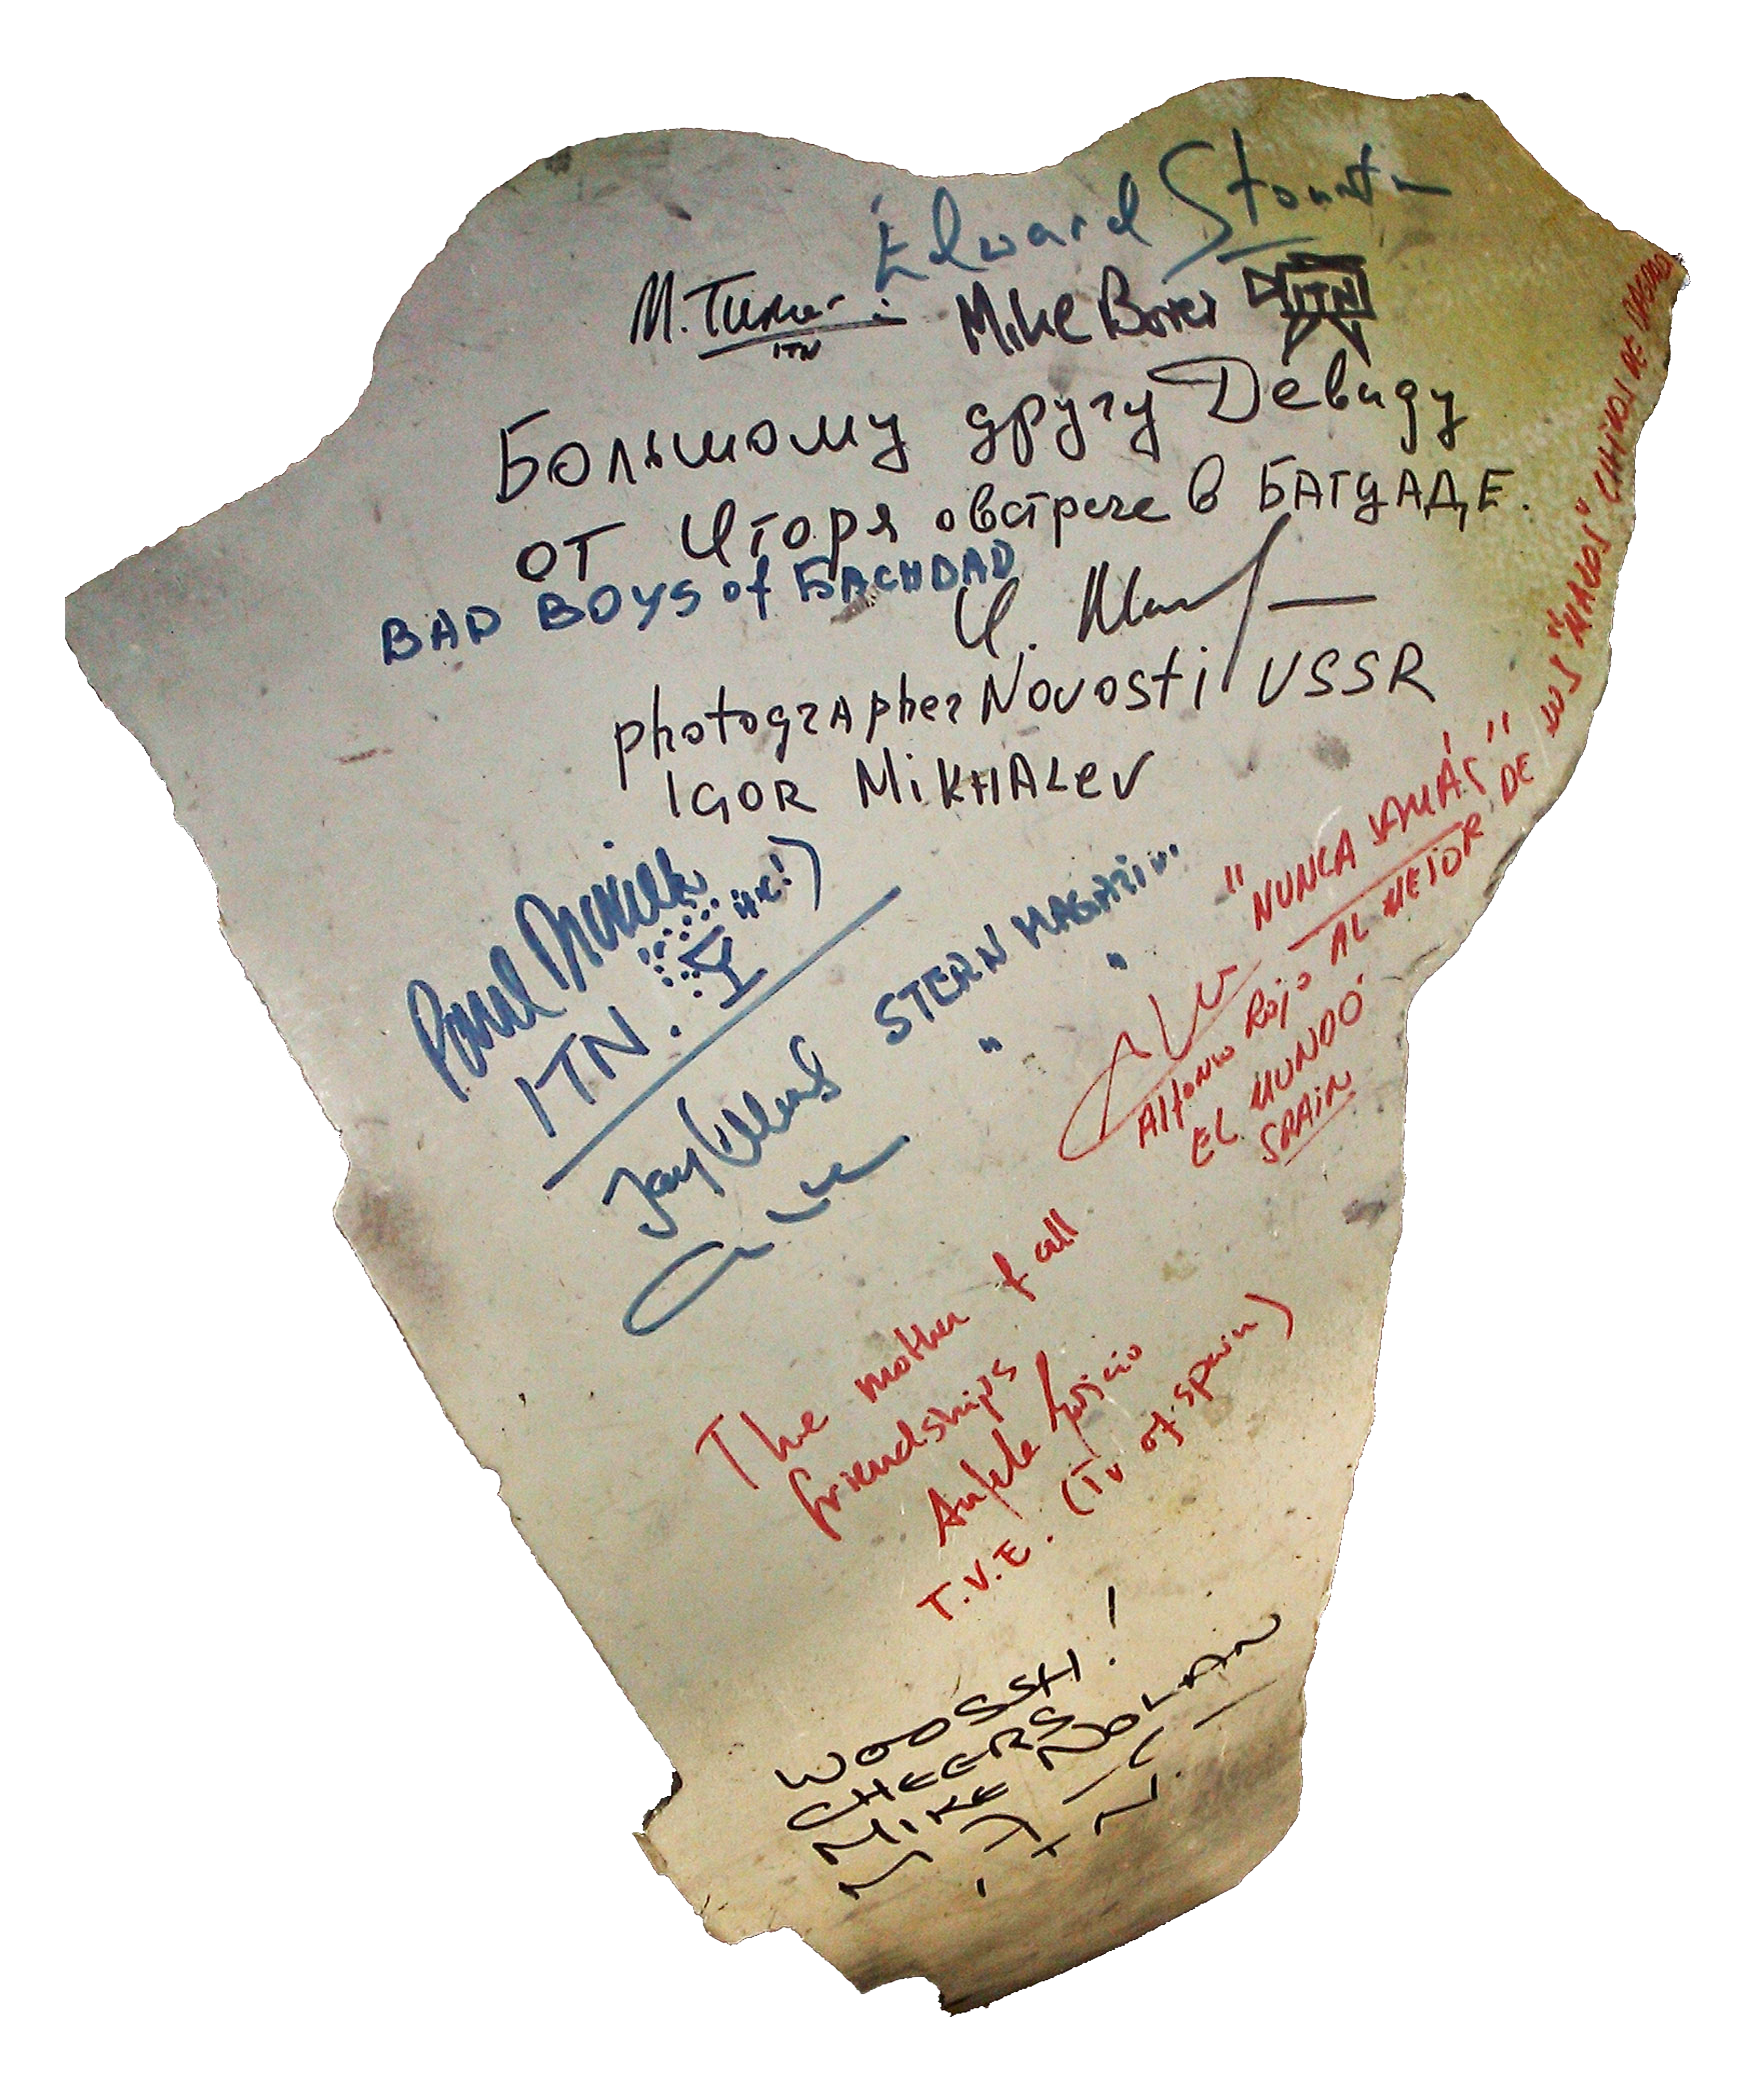 Edward
M. Turner
ITN
Mike
ITN
Большому другу Девиду
от Игоря о встрече в БАГДАДЕ.
BAD BOYS of БAGHDAD
И.
photographer Novosti USSR
IGOR MiKHALev
Paul
(hic!)
ITN.
Jay Ullal STERN MAGAZIN
" "
"NUNCA JAMÁS"
AL MEJOR DE LOS "MALOS" CHICOS DE BAGDAD
Alfonso Rojo
EL MUNDO
SPAIN
The mother of all
friendships
T.V.E. (Tv of spain)
WOOSSH!
CHEERS
MIKE NOLAN